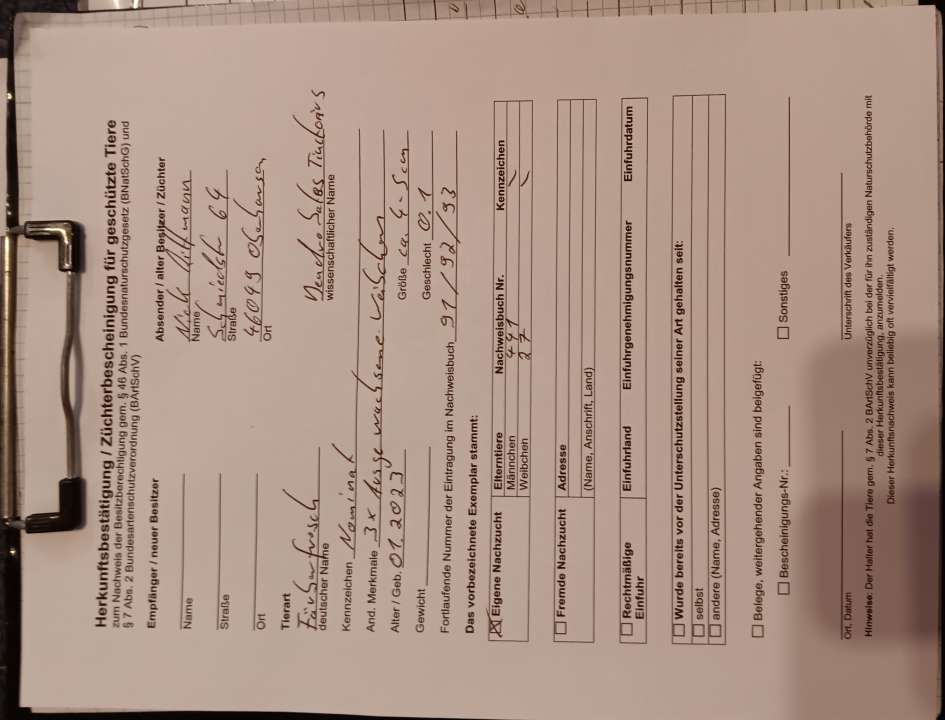 Herkunftsbestätigung / Züchterbescheinigung für geschützte Tiere
zum Nachweis der Besitzberechtigung gem. § 46 Abs. 1 Bundesnaturschutzgesetz (BNatSchG) und
§ 7 Abs. 2 Bundesartenschutzverordnung (BArtSchV)
Empfänger / neuer Besitzer Absender / alter Besitzer / Züchter
Nick
Name Name
64
Straße Straße
46049 Oberhausen
Ort Ort
Tierart
Färberfrosch Dendrobates Tinctorius
deutscher Name wissenschaftlicher Name
Kennzeichen Nominat
And. Merkmale 3x Ausgewachsene
Alter / Geb. 01.2023 Größe ca. 4-5cm
Gewicht Geschlecht 0.1
Fortlaufende Nummer der Eintragung im Nachweisbuch 91/92/93
Das vorbezeichnete Exemplar stammt:
☒ Eigene Nachzucht Elterntiere Nachweisbuch Nr. Kennzeichen
Männchen 441
Weibchen 27
☐ Fremde Nachzucht Adresse
(Name, Anschrift, Land)
☐ Rechtmäßige Einfuhrland Einfuhrgenehmigungsnummer Einfuhrdatum
Einfuhr
☐ Wurde bereits vor der Unterschutzstellung seiner Art gehalten seit:
☐ selbst
☐ andere (Name, Adresse)
☐ Belege, weitergehender Angaben sind beigefügt:
☐ Bescheinigungs-Nr.: ☐ Sonstiges
Ort, Datum Unterschrift des Verkäufers
Hinweise: Der Halter hat die Tiere gem. § 7 Abs. 2 BArtSchV unverzüglich bei der für ihn zuständigen Naturschutzbehörde mit
dieser Herkunftsbestätigung, anzumelden.
Dieser Herkunftsnachweis kann beliebig oft vervielfältigt werden.